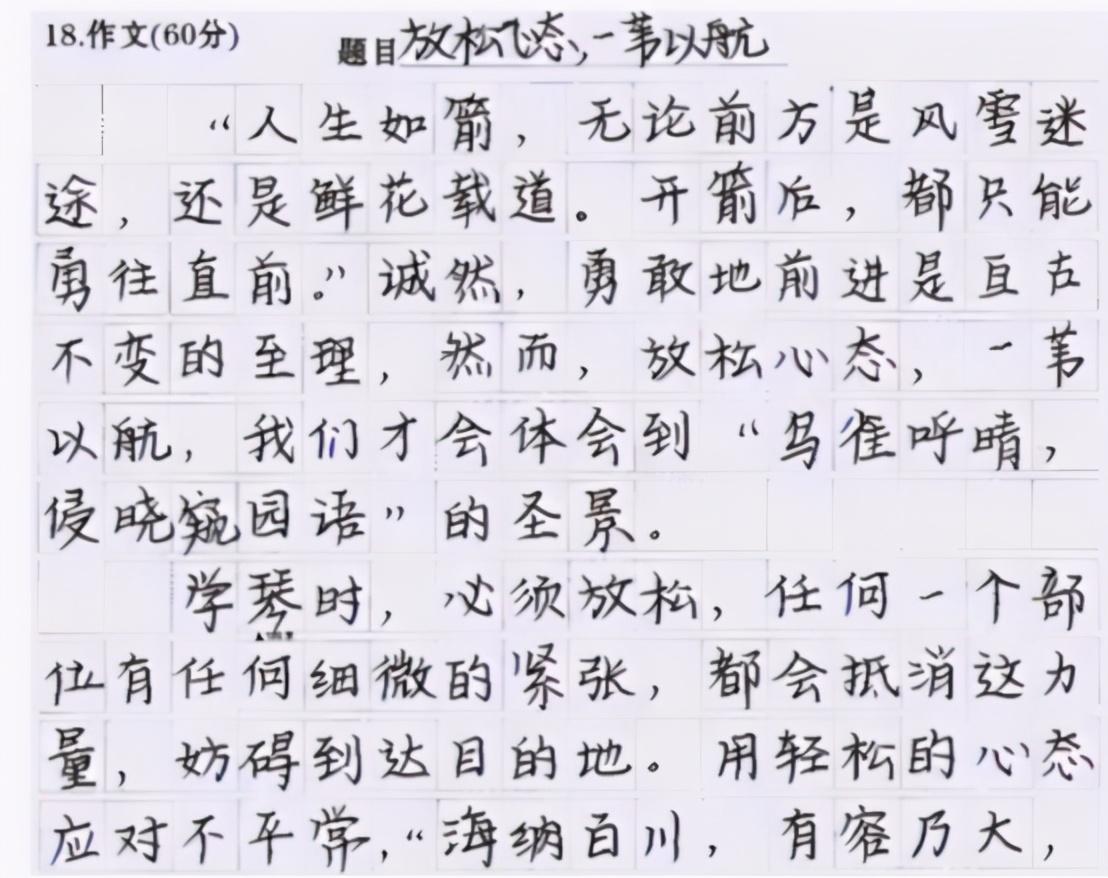 18.作文(60分)
题目放松心态,一苇以航
“人生如箭，无论前方是风雪迷
途，还是鲜花载道。开箭后，都只能
勇往直前。”诚然，勇敢地前进是亘古
不变的至理，然而，放松心态，一苇
以航，我们才会体会到“鸟雀呼晴，
侵晓窥园语”的圣景。
学琴时，必须放松，任何一个部
位有任何细微的紧张，都会抵消这力
量，妨碍到达目的地。用轻松的心态
应对不平常，“海纳百川，有容乃大，